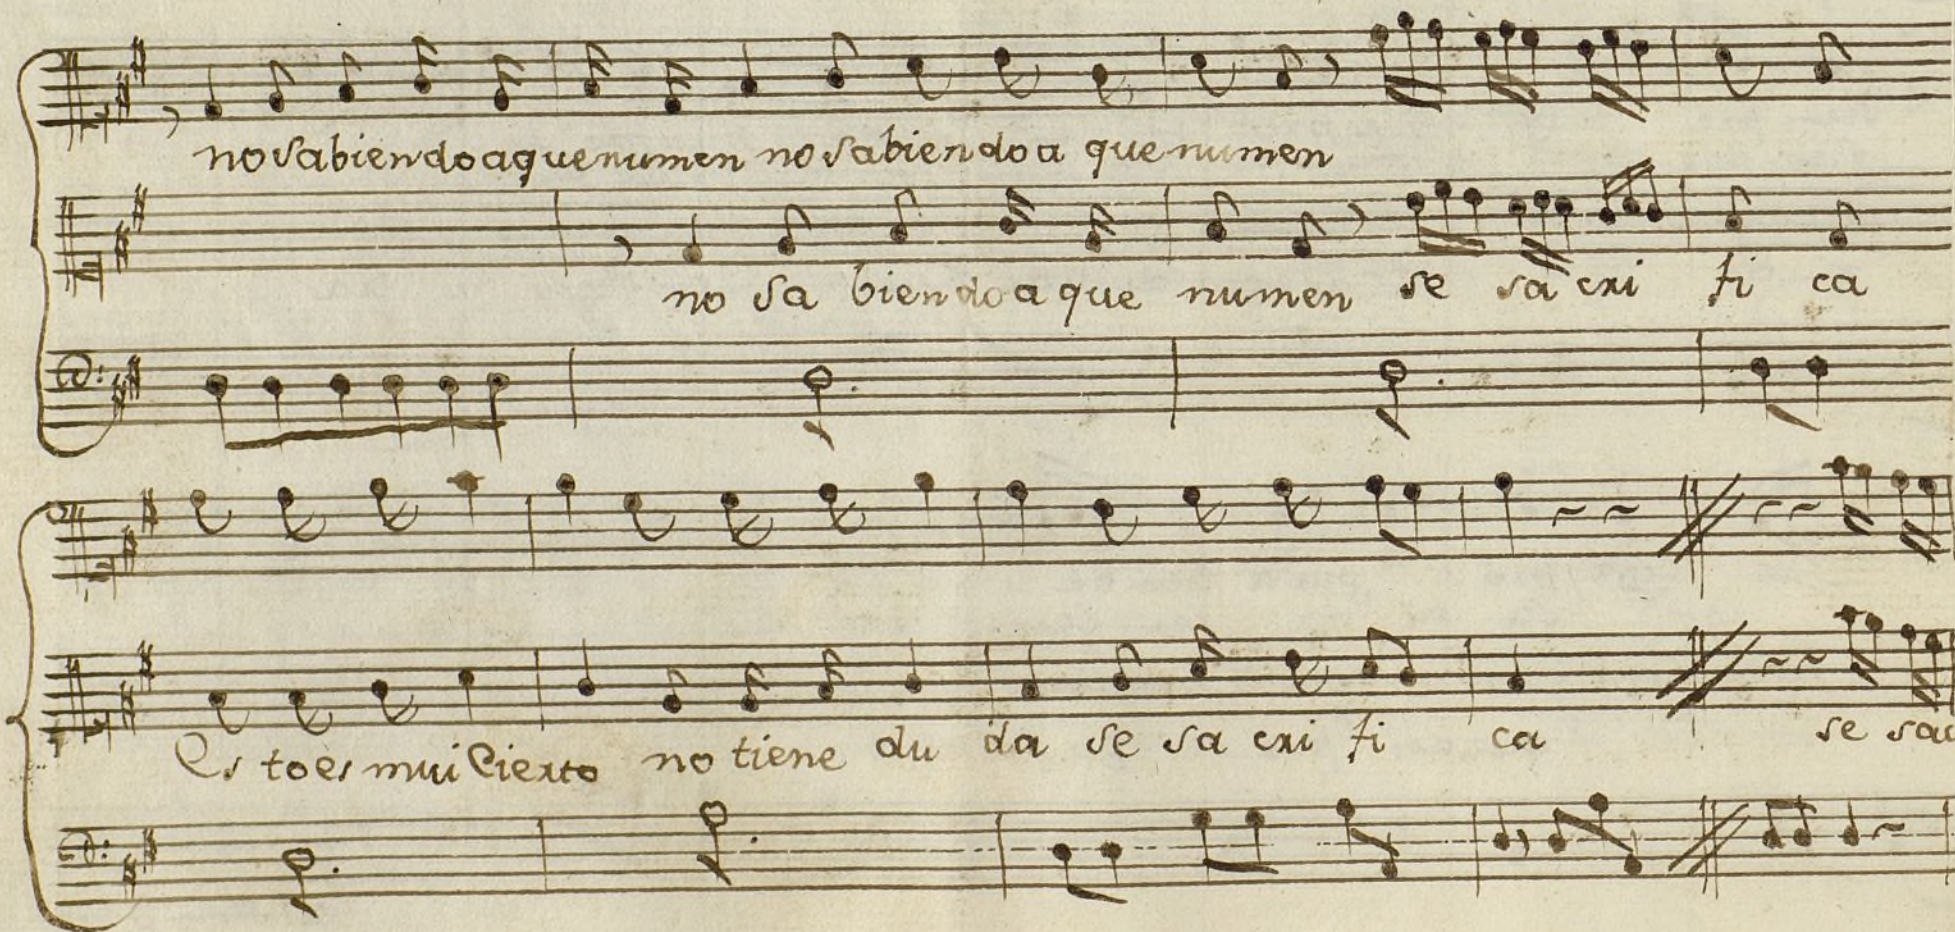 no sabiendo a que numen no sabiendo a que numen
no sa biendo a que numen se sa cri fi ca
Es to es mui Cierto no tiene du da se sa cri fi ca se sac